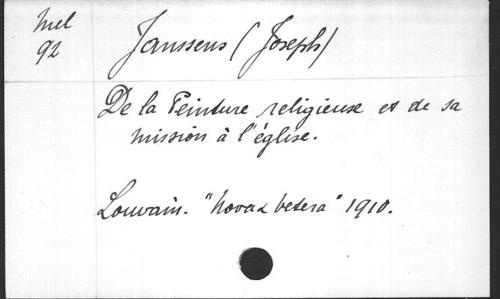 Mel
92
Janssens (Joseph)
De la Peinture religieuse et de sa
mission à l'église.
Louvain. "Nova & Vetera" 1910.